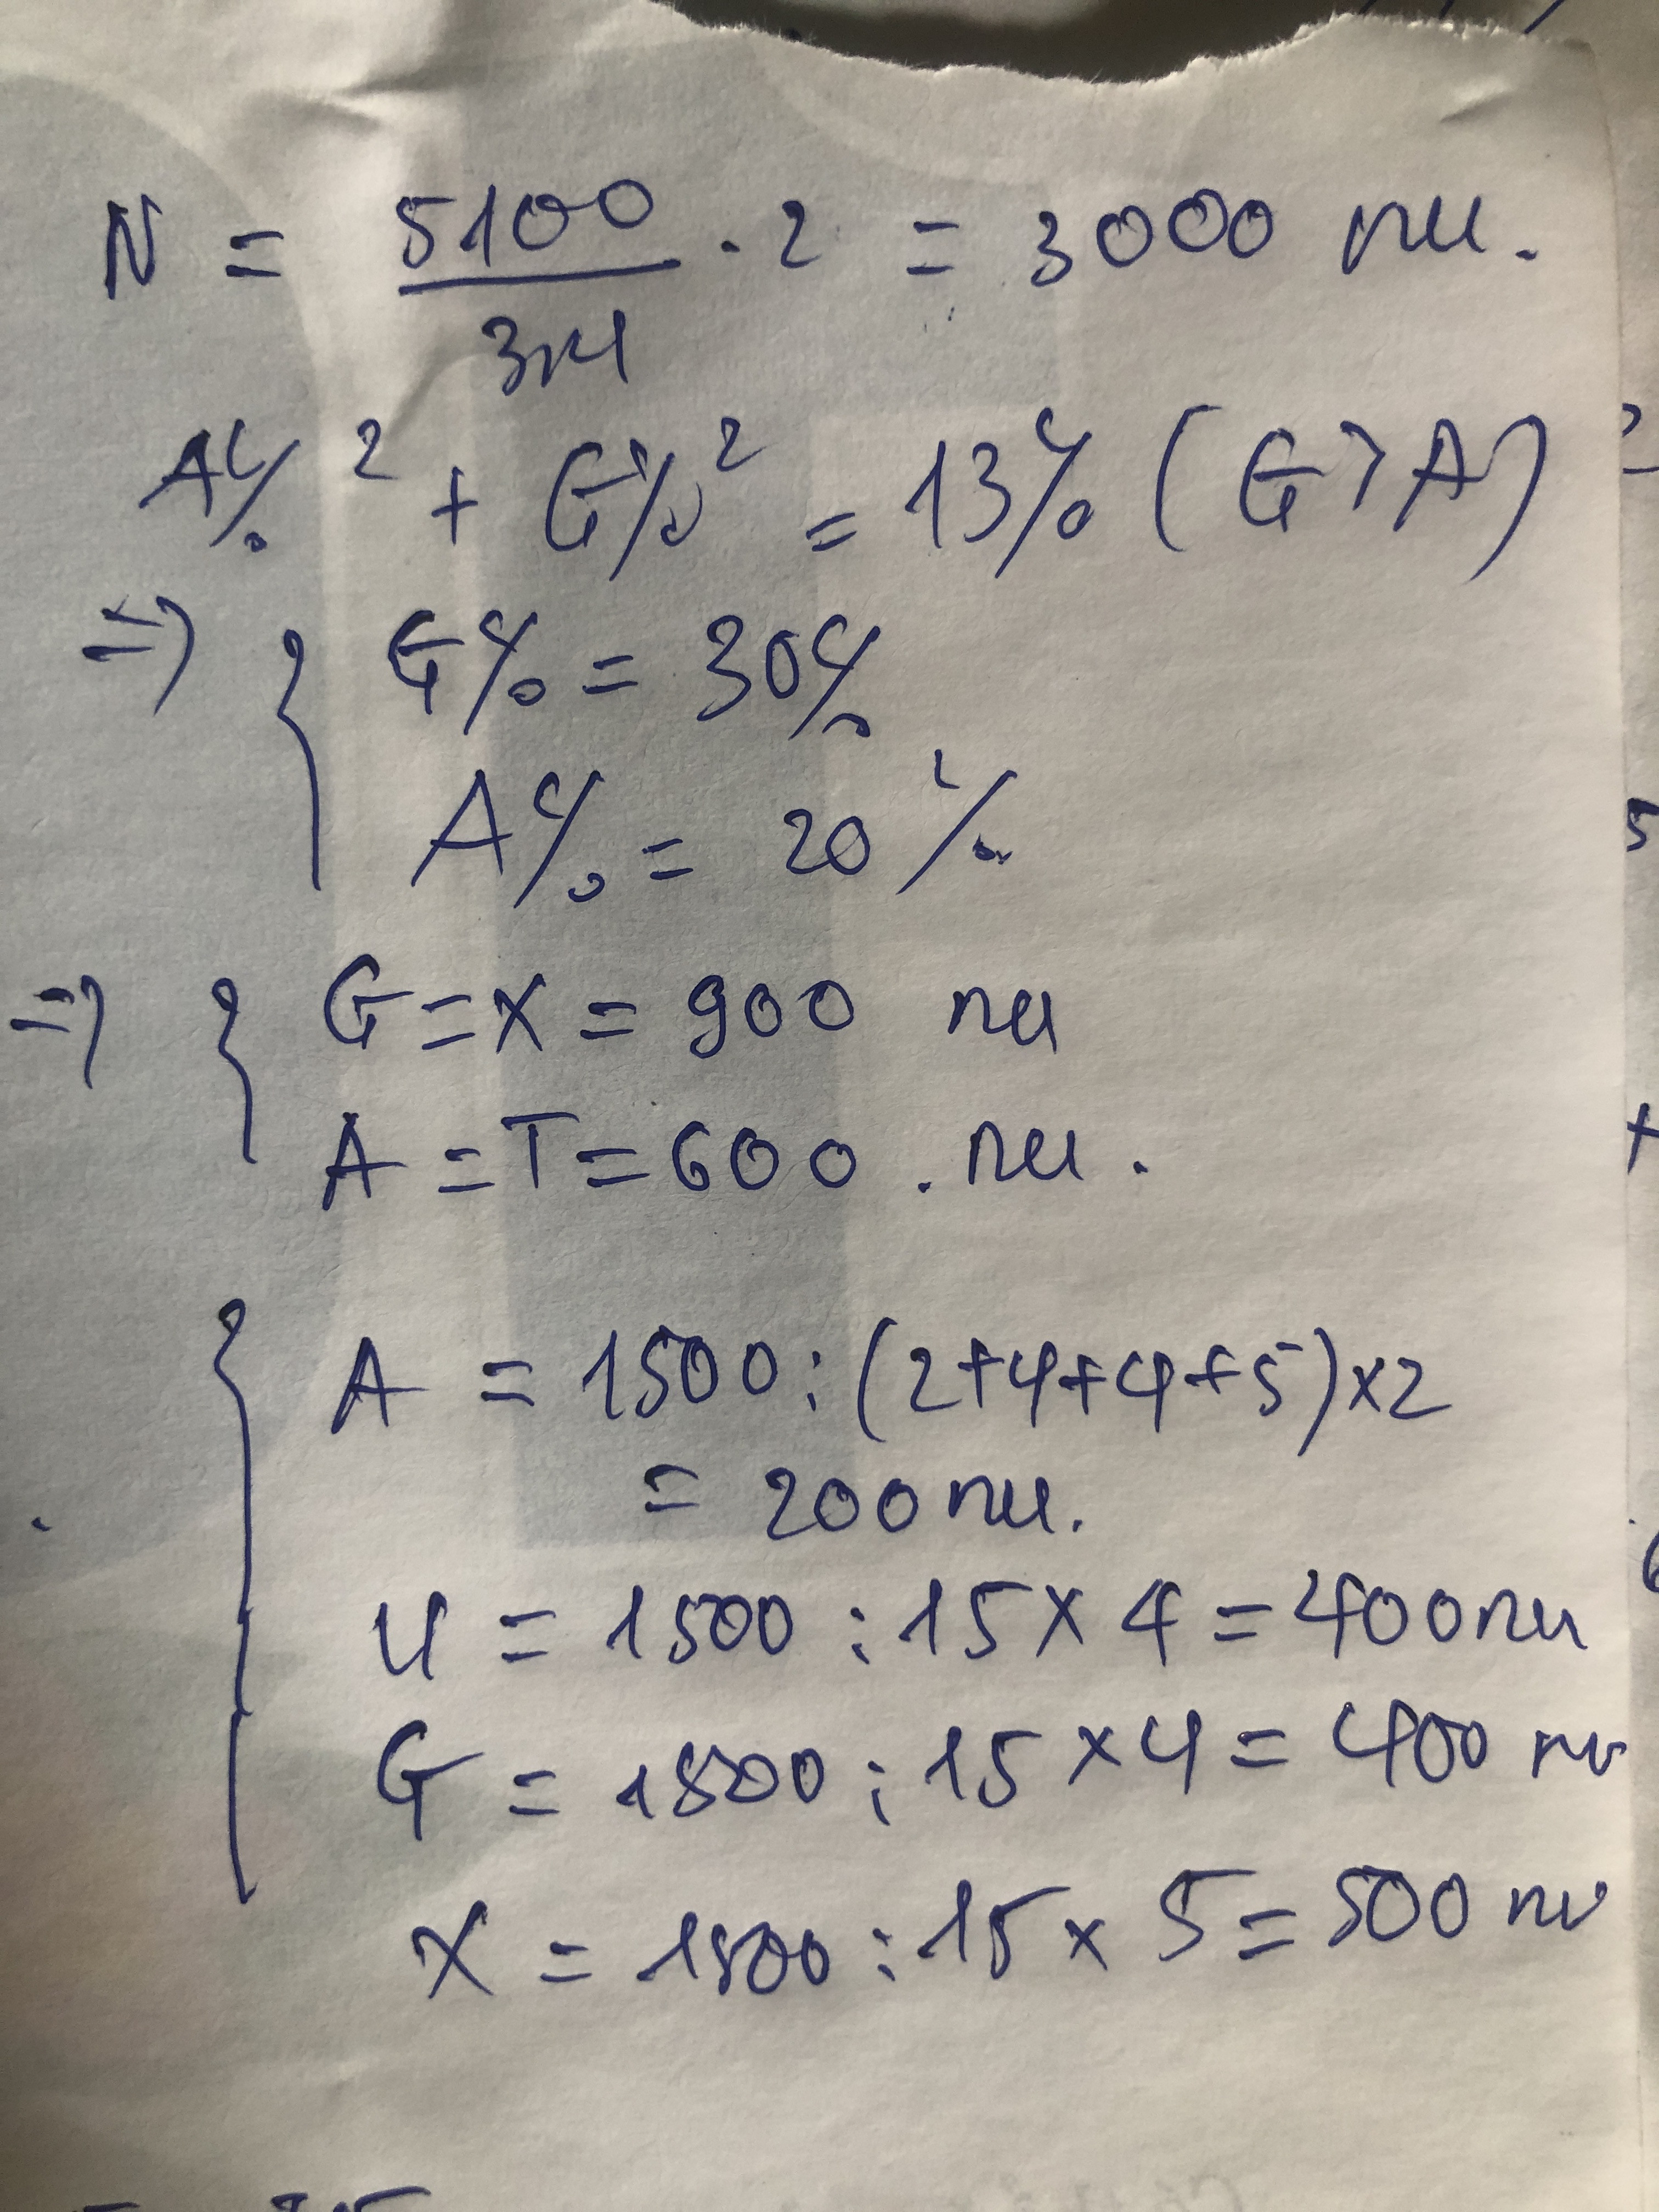 N = 5100/3,4 . 2 = 3000 nu.
A%² + G%² = 13% (G > A)
=> { G% = 30%
A% = 20%
=> { G = X = 900 nu
A = T = 600 . nu.
{ A = 1500 : (2+4+4+5) x 2
= 200 nu.
U = 1500 : 15 x 4 = 400 nu
G = 1500 : 15 x 4 = 400 nu
X = 1500 : 15 x 5 = 500 nu